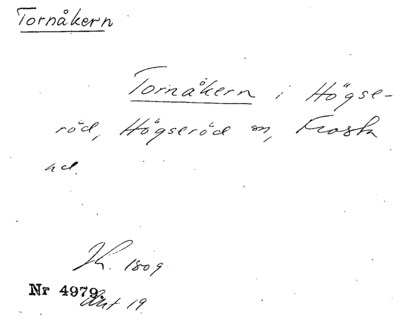 Tornåkern
Tornåkern i Högse-
röd, Högseröd sn, Frosta
hd.
1809
Nr 4979.
Akt 19